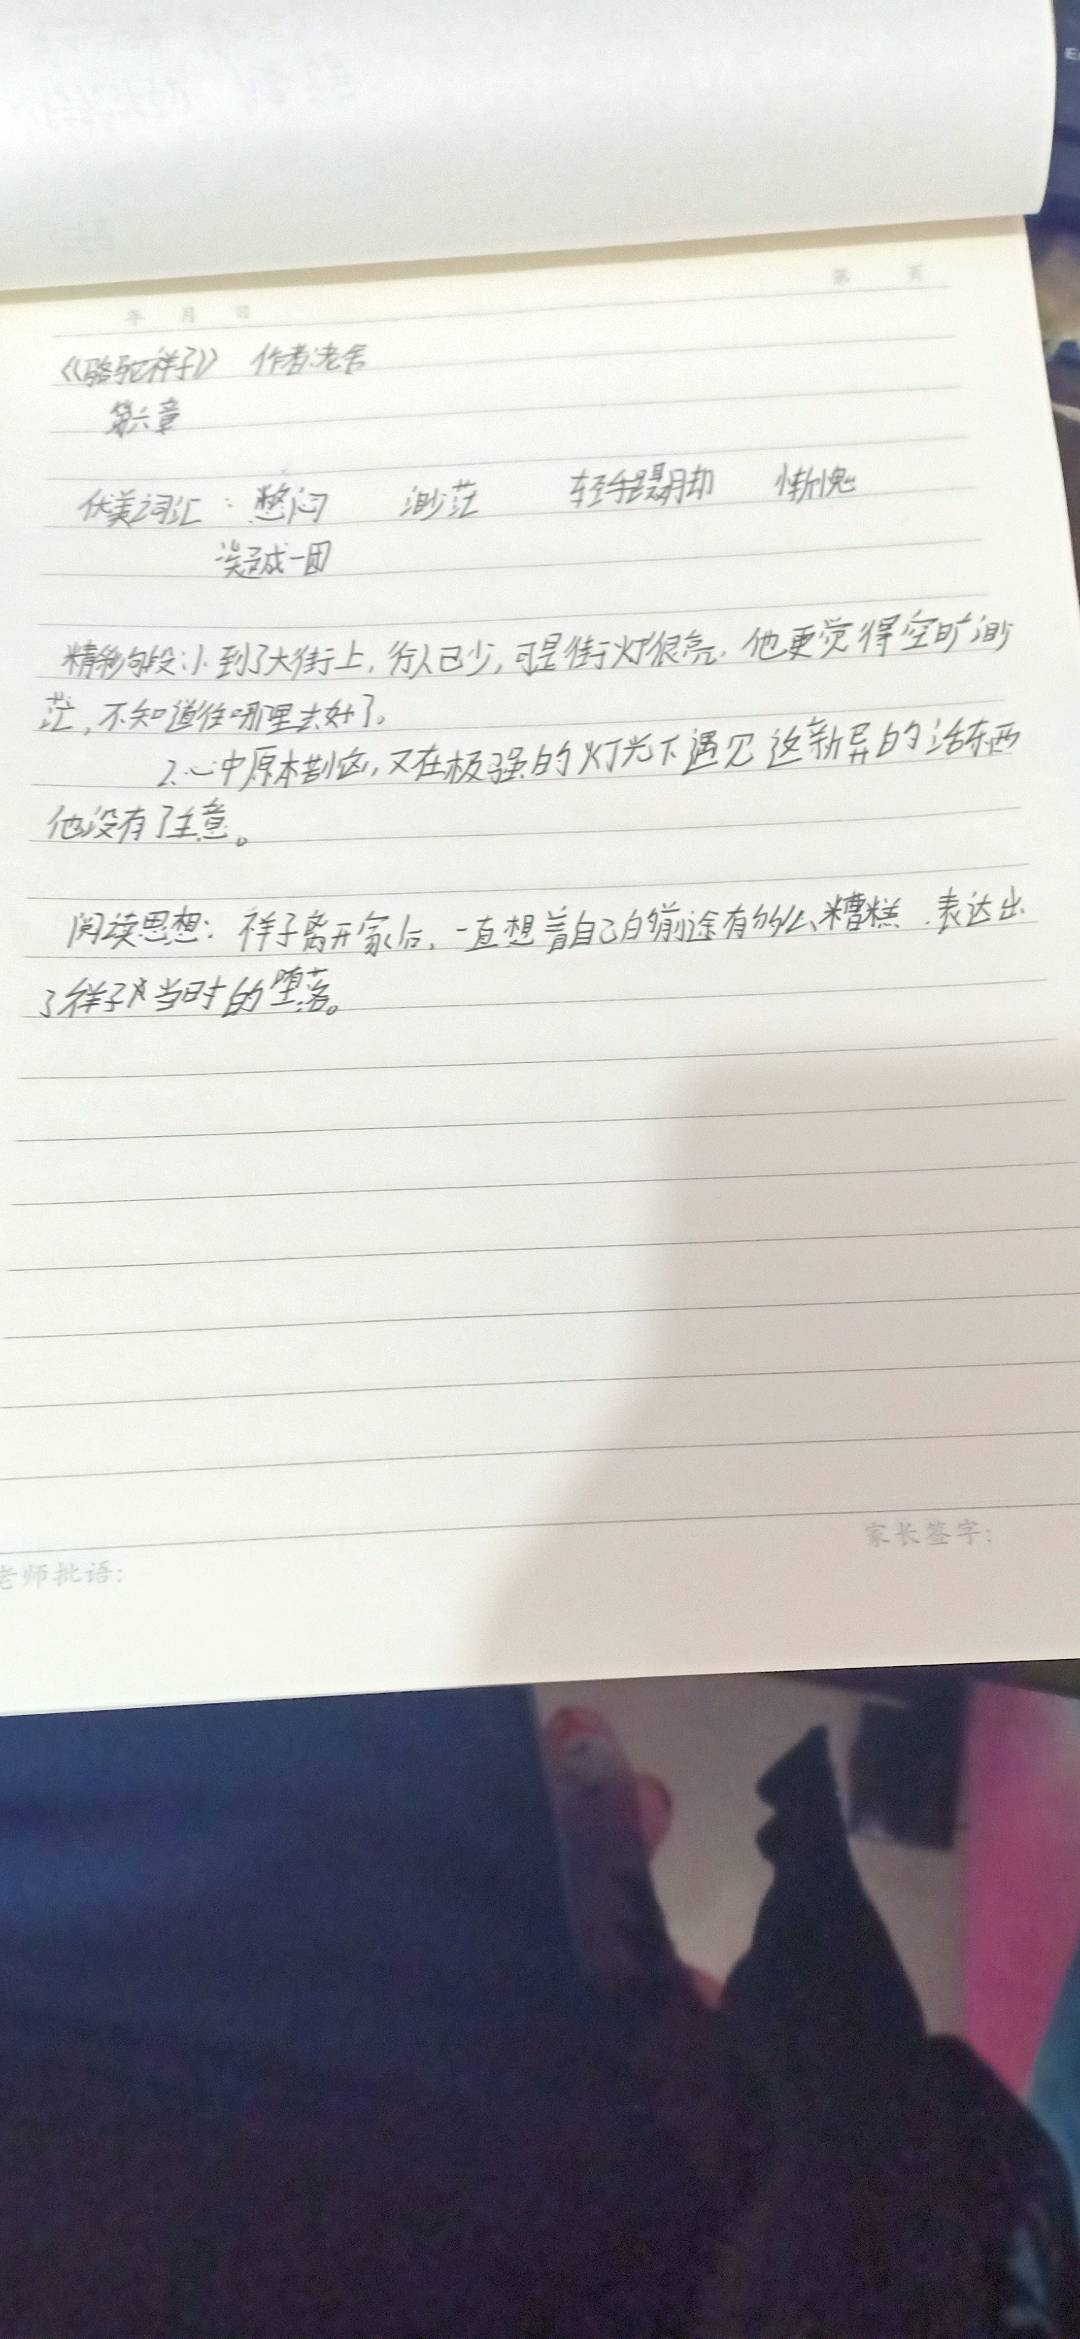 年 月 日
第 页
《骆驼祥子》 作者:老舍
第六章
优美词汇: 憋闷 渺茫 轻手蹑脚 惭愧
凝成一团
精彩句段:1.到了大街上,行人已少,可是街灯很亮,他更觉得空旷渺
茫,不知道往哪里去好了。
2.心中原本 ,又在极强的灯光下遇见这新异的活东西
他没有了主意。
阅读思想:祥子离开家后,一直想着自己的前途有多么糟糕,表达出
了祥子当时的堕落。
家长签字:
老师批语: